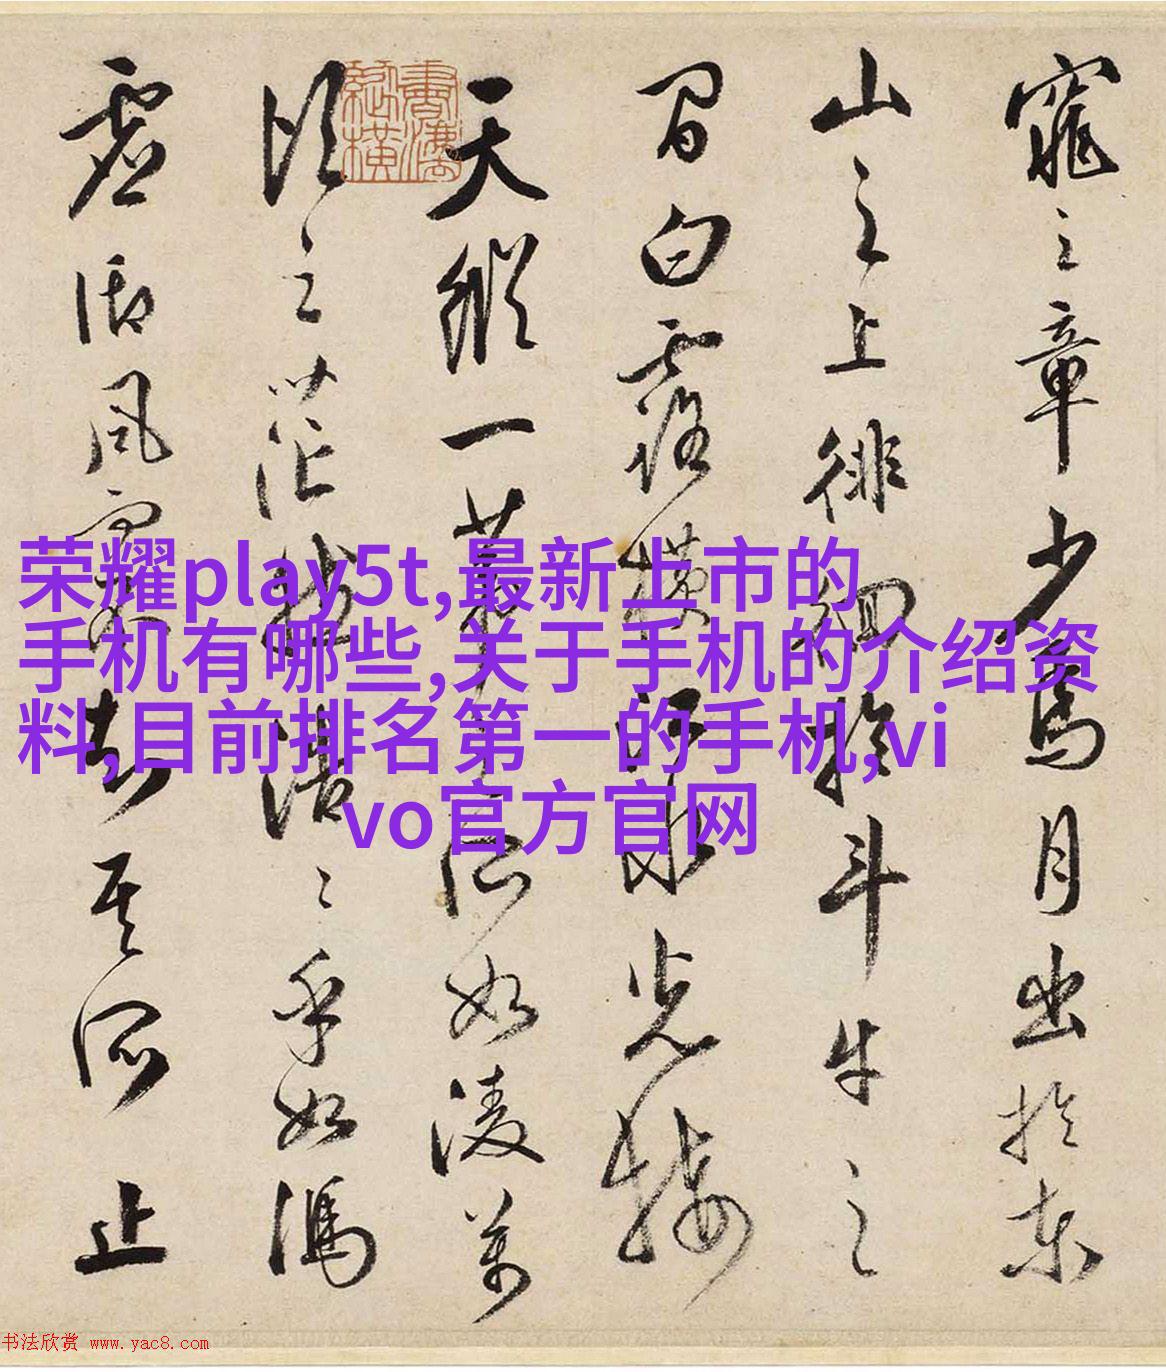 窕之章少焉月出於東
山之上徘徊於斗牛之
間白露橫江水光接
天縱一葦之所如淩萬
頃之茫然浩〻乎如馮
虛御風而不知其所止
荣耀play5t,最新上市的
手机有哪些,关于手机的介绍资
料,目前排名第一的手机,vi
vo官方官网
书法欣赏 www.yac8.com